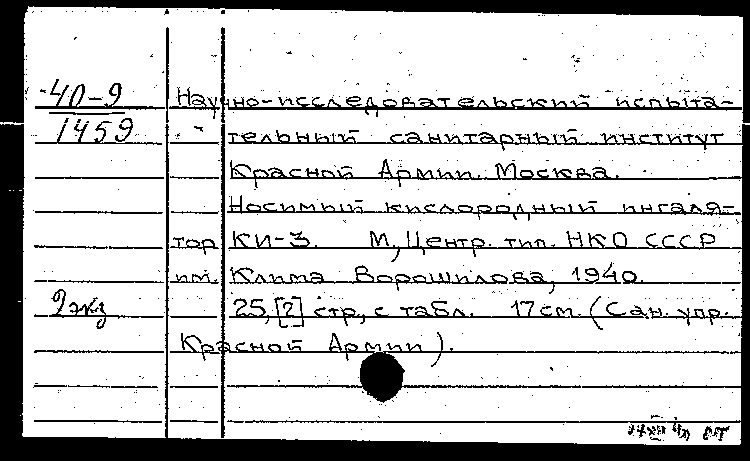 40-9
1459
Научно-исследовательский испыта-
тельный санитарный институт
Красной Армии. Москва.
Носимый кислородный ингаля-
тор КИ-3. М, Центр. тип. НКО СССР
им. Клима Ворошилова, 1940.
2 экз
25, [2] стр, с табл. 17 см. (Сан. упр.
Красной Армии).